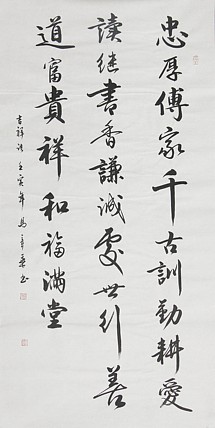 忠厚傅家千古訓勤耕愛
讀继書香謙誠處世引善
道富貴祥和福滿堂
吉祥诗 壬寅年 马